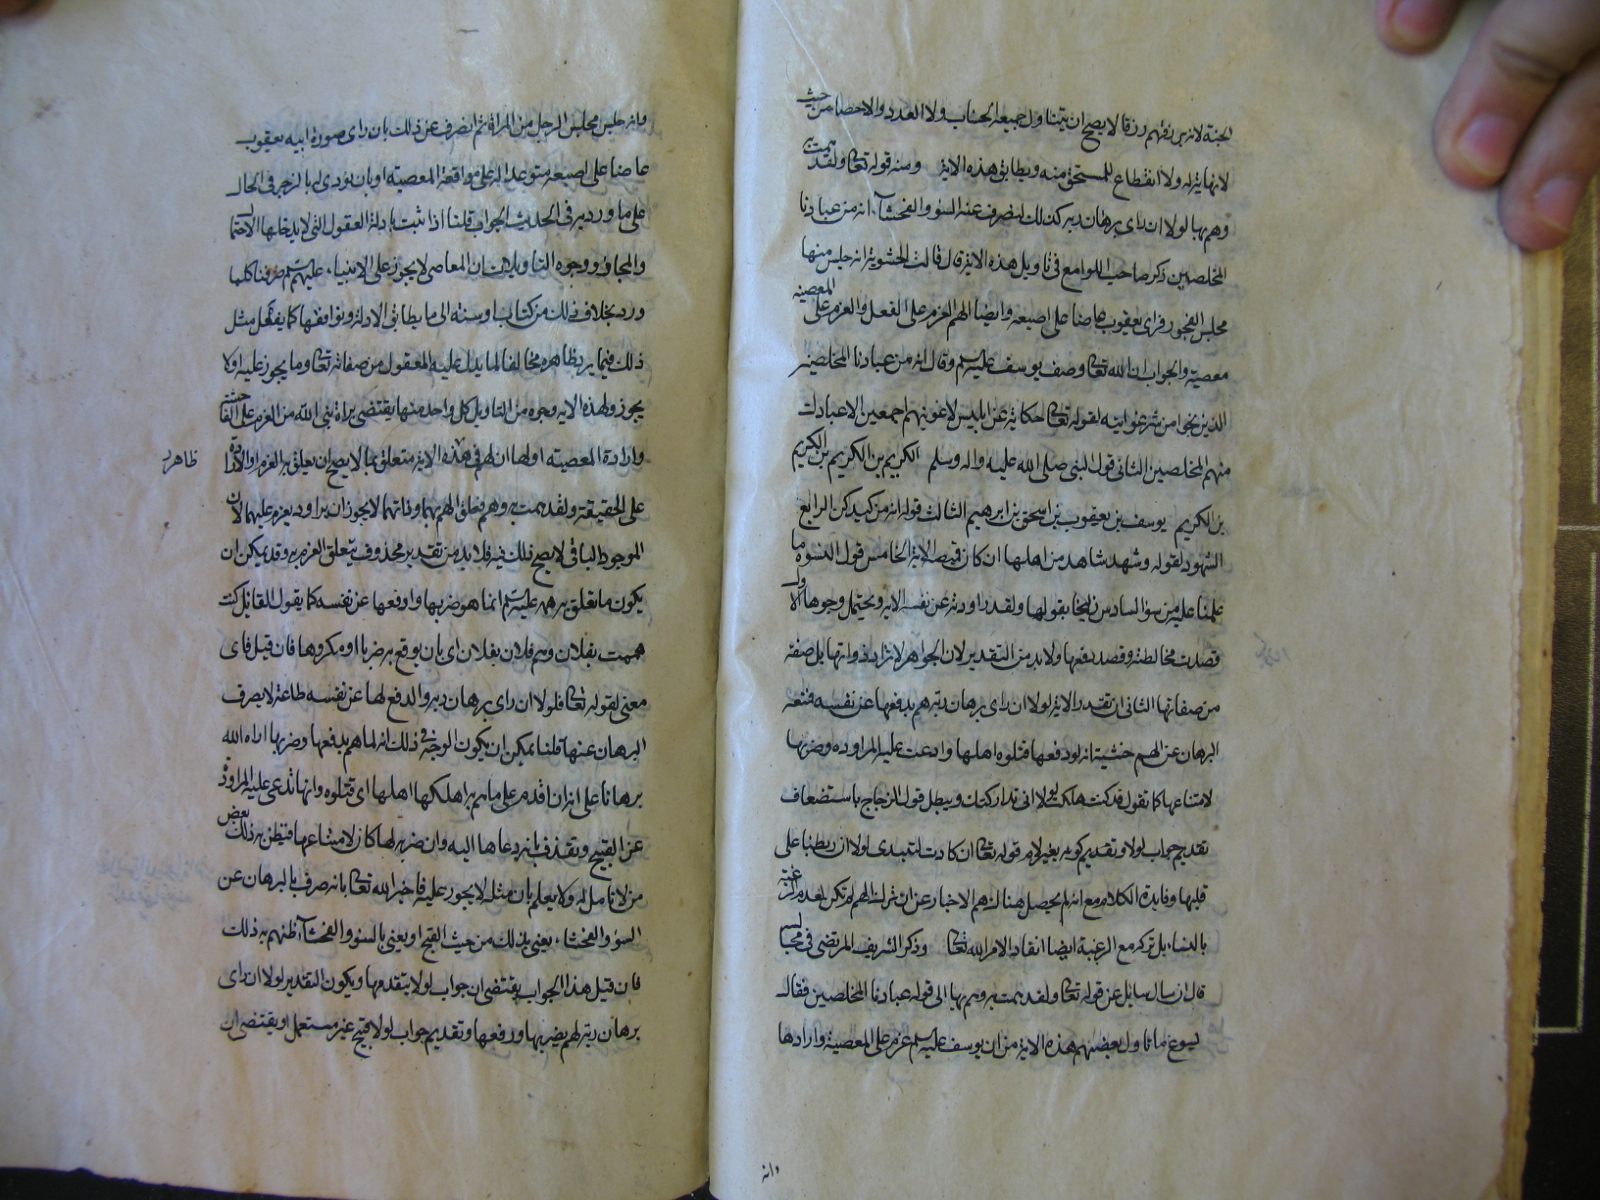 الجنة لانه يرزقهم رزقا لا يصح ان يتناول جميعه الحساب ولا العدد والاحصا من حيث
لا نهاية له ولا انقطاع للمستحق منه ويطابق هذه الاية ومنه قوله تعا ولقد همت به
وهم بها لولا ان راى برهان ربه كذلك لنصرف عنه السؤ والفحشآء انه من عبادنا
المخلصين ذكر صاحب اللوامع في تاويل هذه الاية قال قالت الحشوية انه جلس منها
مجلس الفجور فراى يعقوب عاضا على اصبعه وايضا الهم العزم على الفعل والعزم على المعصية
معصية والجواب ان الله تعا وصف يوسف عليه سلم وقال انه من عبادنا المخلصين
الذين نجوا من شر غوايته لقوله تعا حكاية عن ابليس لاغوينهم اجمعين الا عبادك
منهم المخلصين الثانى قول النبى صلى الله عليه واله وسلم الكريم بن الكريم بن الكريم
بن الكريم يوسف بن يعقوب بن اسحق بن ابرهيم الثالث قوله انه من كيدكن الرابع
الشهود لقوله وشهد شاهد من اهلها ان كان قميصه الاية الخامس قول النسوة ما
علمنا عليه من سؤ السادس زليخا بقولها ولقد راودته عن نفسه الاية ويحتمل وجوها الاول
قصدت مخالطته وقصد دفعها ولا بد من التقدير لان الجواهر لا تراد ذواتها بل صفة
من صفاتها الثانى ان تقدير الاية لولا ان راى برهان ربه هم بدفعها عن نفسه فمنعه
البرهان عن الهم خشية انه لو دفعها قتلوه اهلها وادعت عليه المراوده وضربها
لامتناعها كما تقول قد كنت هلكت لولا انى تداركتك ويبطل قول الزجاج باستضعاف
تقديم جواب لولا وتقديم كونه بغير لام قوله تعا ان كادت لتبدى لولا ان ربطنا على
قلبها وفايدة الكلام مع انه لم يحصل هناك هم الاخبار عن ان ترك الهم لم تكن لعدم الرغبة
بالنساء بل تركه مع الرغبة ايضا انقادا لامر الله تعا وذكر الشريف المرتضى في مجالسه
قال ان سال سايل عن قوله تعا ولقد همت به وهم بها الى قوله عبادنا المخلصين فقال
يسوغ ما تاول بعضهم هذه الاية من ان يوسف عليه سلم عزم على المعصية وارادها
وانه
وانه جلس مجلس الرجل من المراة ثم انصرف عن ذلك بان راى صورة ابيه يعقوب
عاضا على اصبعه متوعدا له على مواقعة المعصيه او بان نودى له بالزجر في الحال
على ما ورد به في الحديث الجواب قلنا اذا ثبت بادلة العقول التى لا يدخلها الاحتمال
والمجاز ووجوه التاويلات ان المعاصى لا يجوز على الانبياء عليهم سلم صرفنا كلما
ورد بخلاف ذلك من كتاب او سنة الى ما يطابق الادلة ويوافقها كما يفعل مثل
ذلك فيما يرد ظاهره مخالفا لما يدل عليه المعقول من صفاته تعا وما يجوز عليه او لا
يجوز ولهذه الايه وجوه من التاويل كل واحد منها يقتضى براة نبى الله من العزم على الفاحشة
وارادة المعصيه اولها ان الهم في هذه الاية متعلق بما لا يصح ان يعلق به العزم او الارادة
ظاهر
على الحقيقة ولقد همت به وهم فعلق الهم بهما وذاتهما لا يجوز ان يراد ويعزم عليهما لان
الموجود الباقى لا يصح ذلك فيه فلا بد من تقدير محذوف يتعلق العزم به وقد يمكن ان
يكون ما تعلق به همه عليه سلم انما هو ضربها او دفعها عن نفسه كما يقول القائل كنت
هممت بفلان وهم فلان بفلان اى بان يوقع به ضربا او مكروها فان قيل فاى
معنى لقوله تعا فلولا ان راى برهان ربه والدفع لها عن نفسه طاعة لا يصرف
البرهان عنها قلنا يمكن ان يكون الوجه في ذلك انه لما هم بدفعها وضربها اراه الله
برهانا على انه ان اقدم على ما هم به اهلكها اهلها اى قتلوه وانها تدعى عليه المراودة
عن القبيح وتقذفه بانه دعاها اليه وان ضربه لها كان لامتناعها فيظن به ذلك بعض
من لا تامل له ولا يعلم بان مثله لا يجوز عليه فاخبر الله تعا بانه صرف بالبرهان عن
السؤ والفحشاء يعنى بذلك من حيث القبح او يعنى بالسؤ والفحشآء ظنهم به ذلك
فان قيل هذا الجواب يقتضى ان جواب لولا يتقدمها ويكون التقدير لولا ان راى
برهان ربه لهم بضربها ودفعها وتقديم جواب لولا قبيح غير مستعمل او يقتضى ان